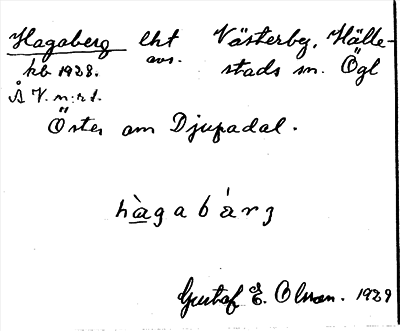 Hagaberg lht Västerby, Hälle-
kb 1928. avs. stads sn. Ögl
Å V. m:r d.
Öster om Djupadal.
hàgabárg
Gustaf E. Olsson. 1929